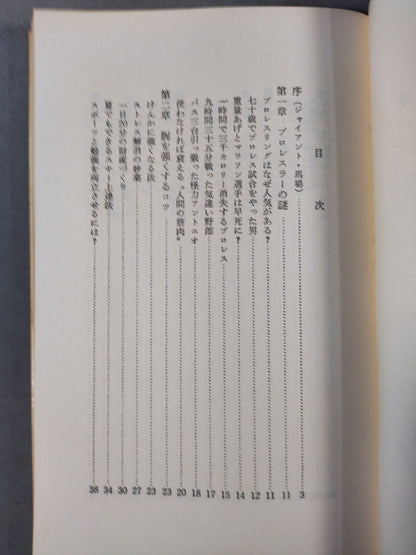 目次
序（ジャイアント・馬場） 3
第一章 プロレスラーの謎 11
プロレスリングはなぜ人気がある？ 11
七十歳でプロレス試合をやった男 12
重量あげとマラソン選手は早死に？ 14
一時間で三千カロリー消失するプロレス 15
九時間三十五分戦った気違い野郎 17
バス三台引っ張った怪力アントニオ 18
使わなければ衰える〝人間の筋肉〟 20
第二章 腕を強くするコツ 23
けんかに強くなる法 23
ストレス解消の妙薬 27
一日20分の財産づくり 30
夏でもできるスキー上達法 34
スポーツと勉強を両立させるには？ 38